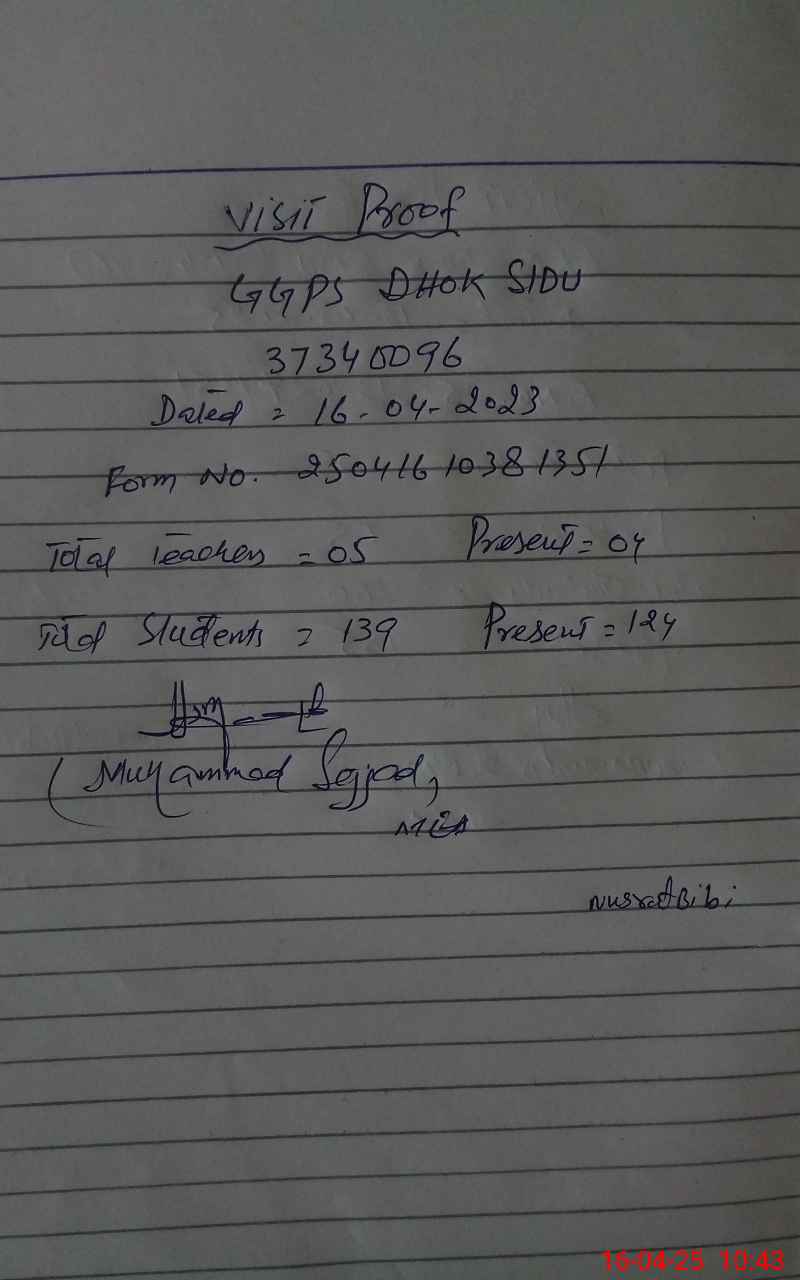 Visit Proof
GGPS DHOK SIDU
37340096
Dated = 16-04-2023
Form No. 25041610381351
Total Teachers = 05 Present = 04
Total Students = 139 Present = 124
(Muhammad Sajjad,
MEA
Nusrat Bibi
16-04-25 10:43